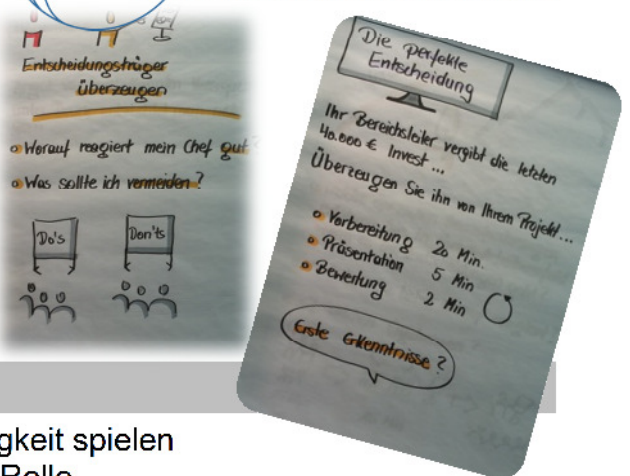 Entscheidungsträger
überzeugen
Worauf reagiert mein Chef gut?
Was sollte ich vermeiden?
Do's
Don'ts
Die perfekte
Entscheidung
Ihr Bereichsleiter vergibt die letzten
40.000 € Invest...
Überzeugen Sie ihn von Ihrem Projekt...
Vorbereitung 20 Min.
Präsentation 5 Min
Bewertung 2 Min
Erste Erkenntnisse?
gkeit spielen